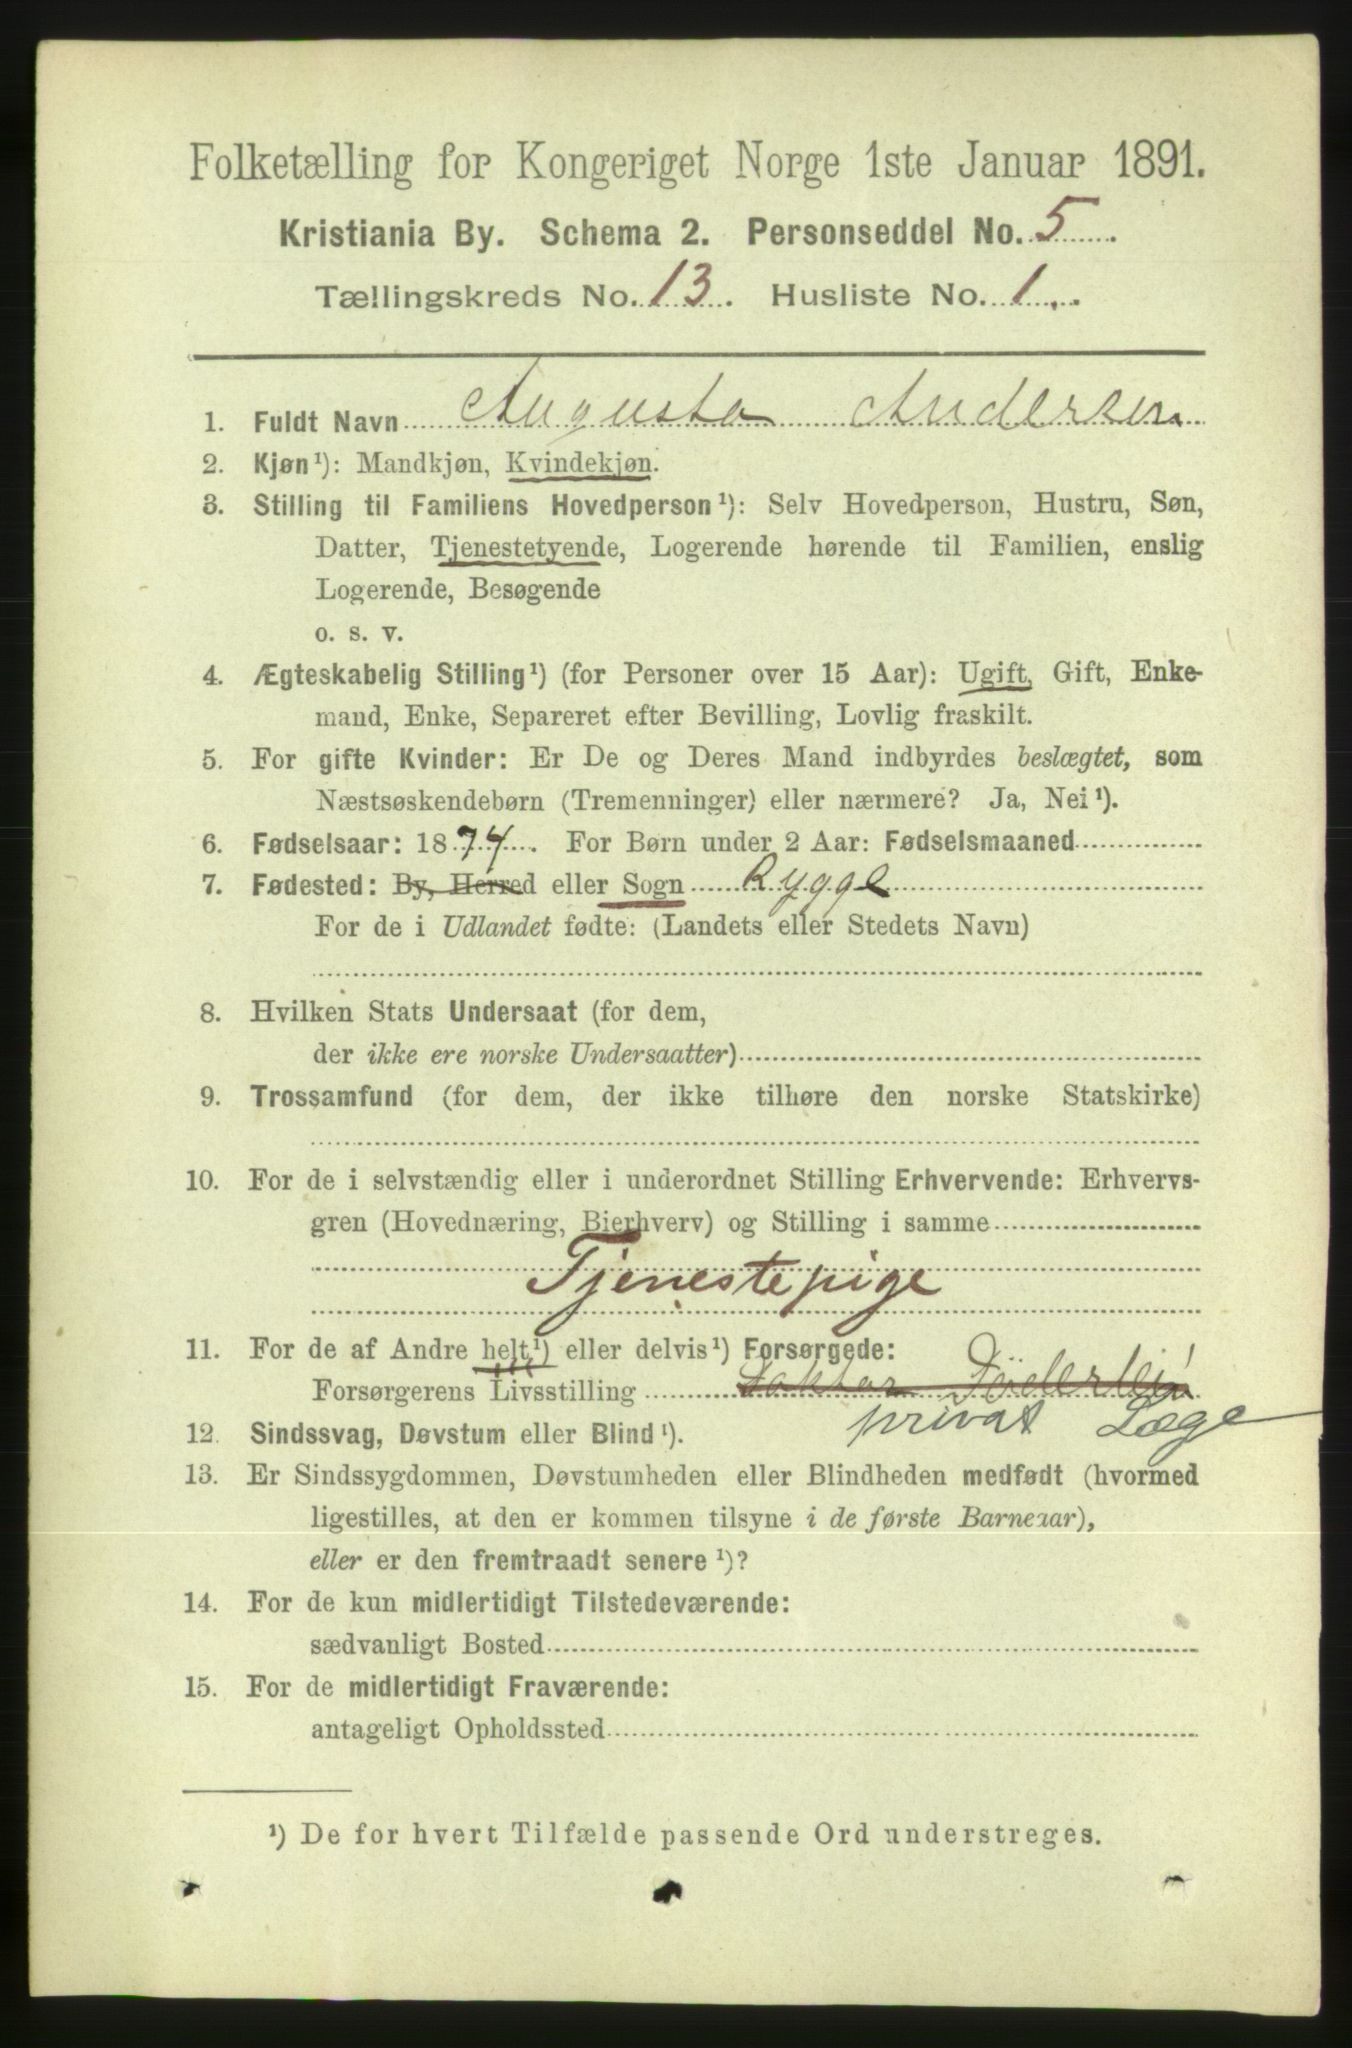 Folketælling for Kongeriget Norge 1ste Januar 1891.
Kristiania By. Schema 2. Personseddel No. 5
Tællingskreds No. 13. Husliste No. 1.
1. Fuldt Navn Augusta Andersen.
2. Kjøn¹): Mandkjøn, Kvindekjøn.
3. Stilling til Familiens Hovedperson¹): Selv Hovedperson, Hustru, Søn,
Datter, Tjenestetyende, Logerende hørende til Familien, enslig
Logerende, Besøgende
o. s. v.
4. Ægteskabelig Stilling¹) (for Personer over 15 Aar): Ugift, Gift, Enke-
mand, Enke, Separeret efter Bevilling, Lovlig fraskilt.
5. For gifte Kvinder: Er De og Deres Mand indbyrdes beslægtet, som
Næstsøskendebørn (Tremenninger) eller nærmere? Ja, Nei¹).
6. Fødselsaar: 1874. For Børn under 2 Aar: Fødselsmaaned
7. Fødested: By, Herred eller Sogn Rygge
For de i Udlandet fødte: (Landets eller Stedets Navn)
8. Hvilken Stats Undersaat (for dem,
der ikke ere norske Undersaatter)
9. Trossamfund (for dem, der ikke tilhøre den norske Statskirke)
10. For de i selvstændig eller i underordnet Stilling Erhvervende: Erhvervs-
gren (Hovednæring, Bierhverv) og Stilling i samme
Tjenestepige
11. For de af Andre helt¹) eller delvis¹) Forsørgede:
Forsørgerens Livsstilling Doktor
privat Læge
12. Sindssvag, Døvstum eller Blind¹).
13. Er Sindssygdommen, Døvstumheden eller Blindheden medfødt (hvormed
ligestilles, at den er kommen tilsyne i de første Barneaar),
eller er den fremtraadt senere¹)?
14. For de kun midlertidigt Tilstedeværende:
sædvanligt Bosted
15. For de midlertidigt Fraværende:
antageligt Opholdssted
¹) De for hvert Tilfælde passende Ord understreges.